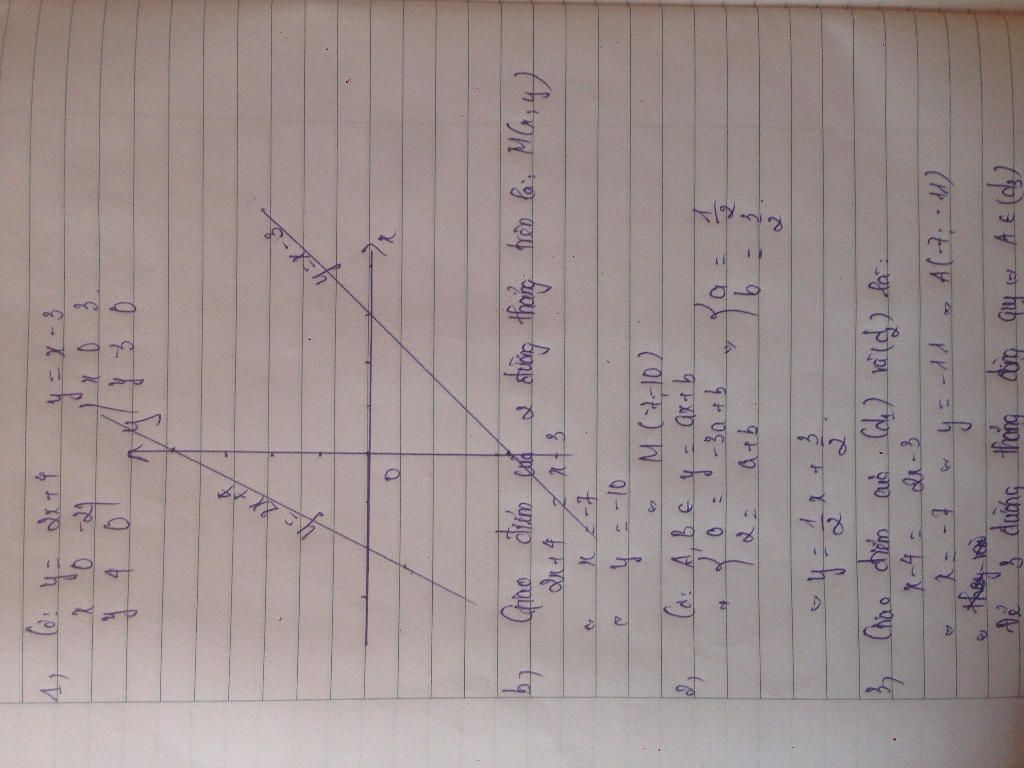 1) Có: y = 2x+4 y = x - 3
x 0 -2 x 0 3
y 4 0 y -3 0
y
y = x - 3
x
O
b) Giao điểm của 2 đường thẳng trên là: M(x, y)
2x+4 = x - 3
x = -7
y = -10
M(-7,-10)
2) Có: A, B ∈ y = ax+b
{ 0 = -3a+b { a = 1/2
2 = a+b b = 3/2
y = 1/2 x + 3/2
3) Giao điểm của (d1) và (d2) là:
x-4 = 2x-3
x = -7 y = -11 A(-7; -11)
Để 3 đường thẳng đồng quy A ∈ (d3)